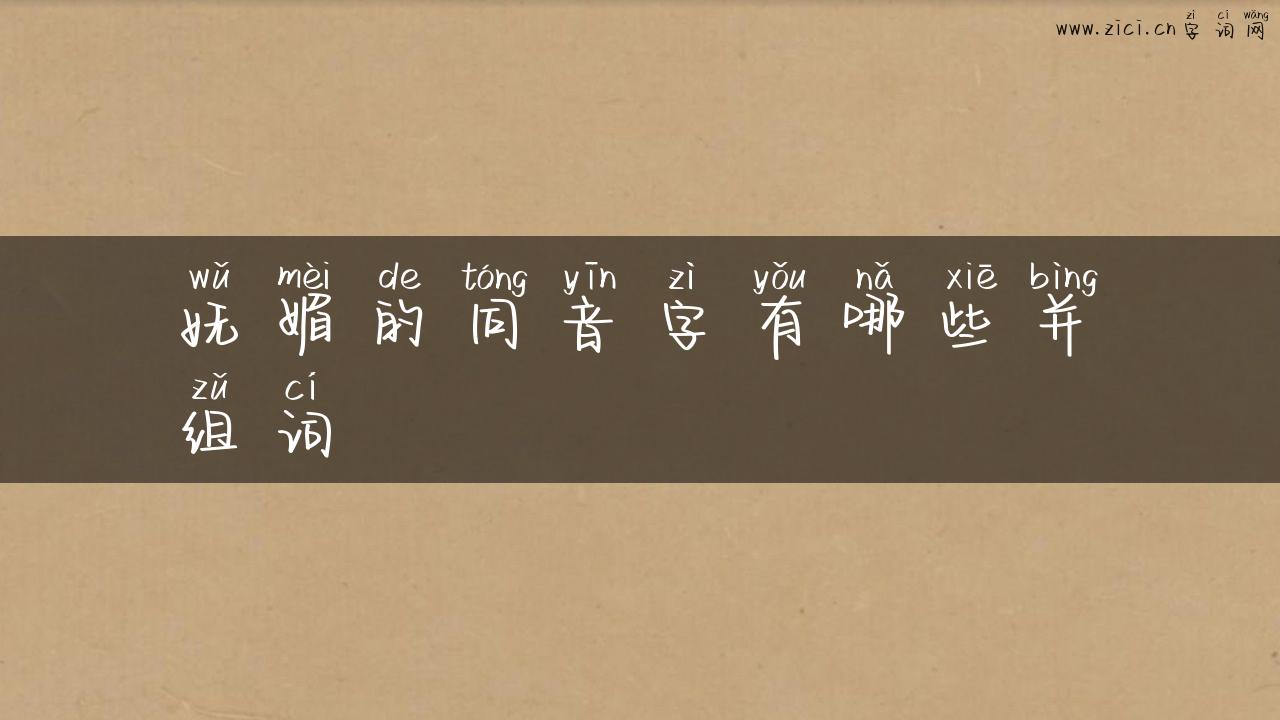 zì cí wǎng
www.zici.cn 字词网
wǔ mèi de tóng yīn zì yǒu nǎ xiē bìng
妩媚的同音字有哪些并
zǔ cí
组词